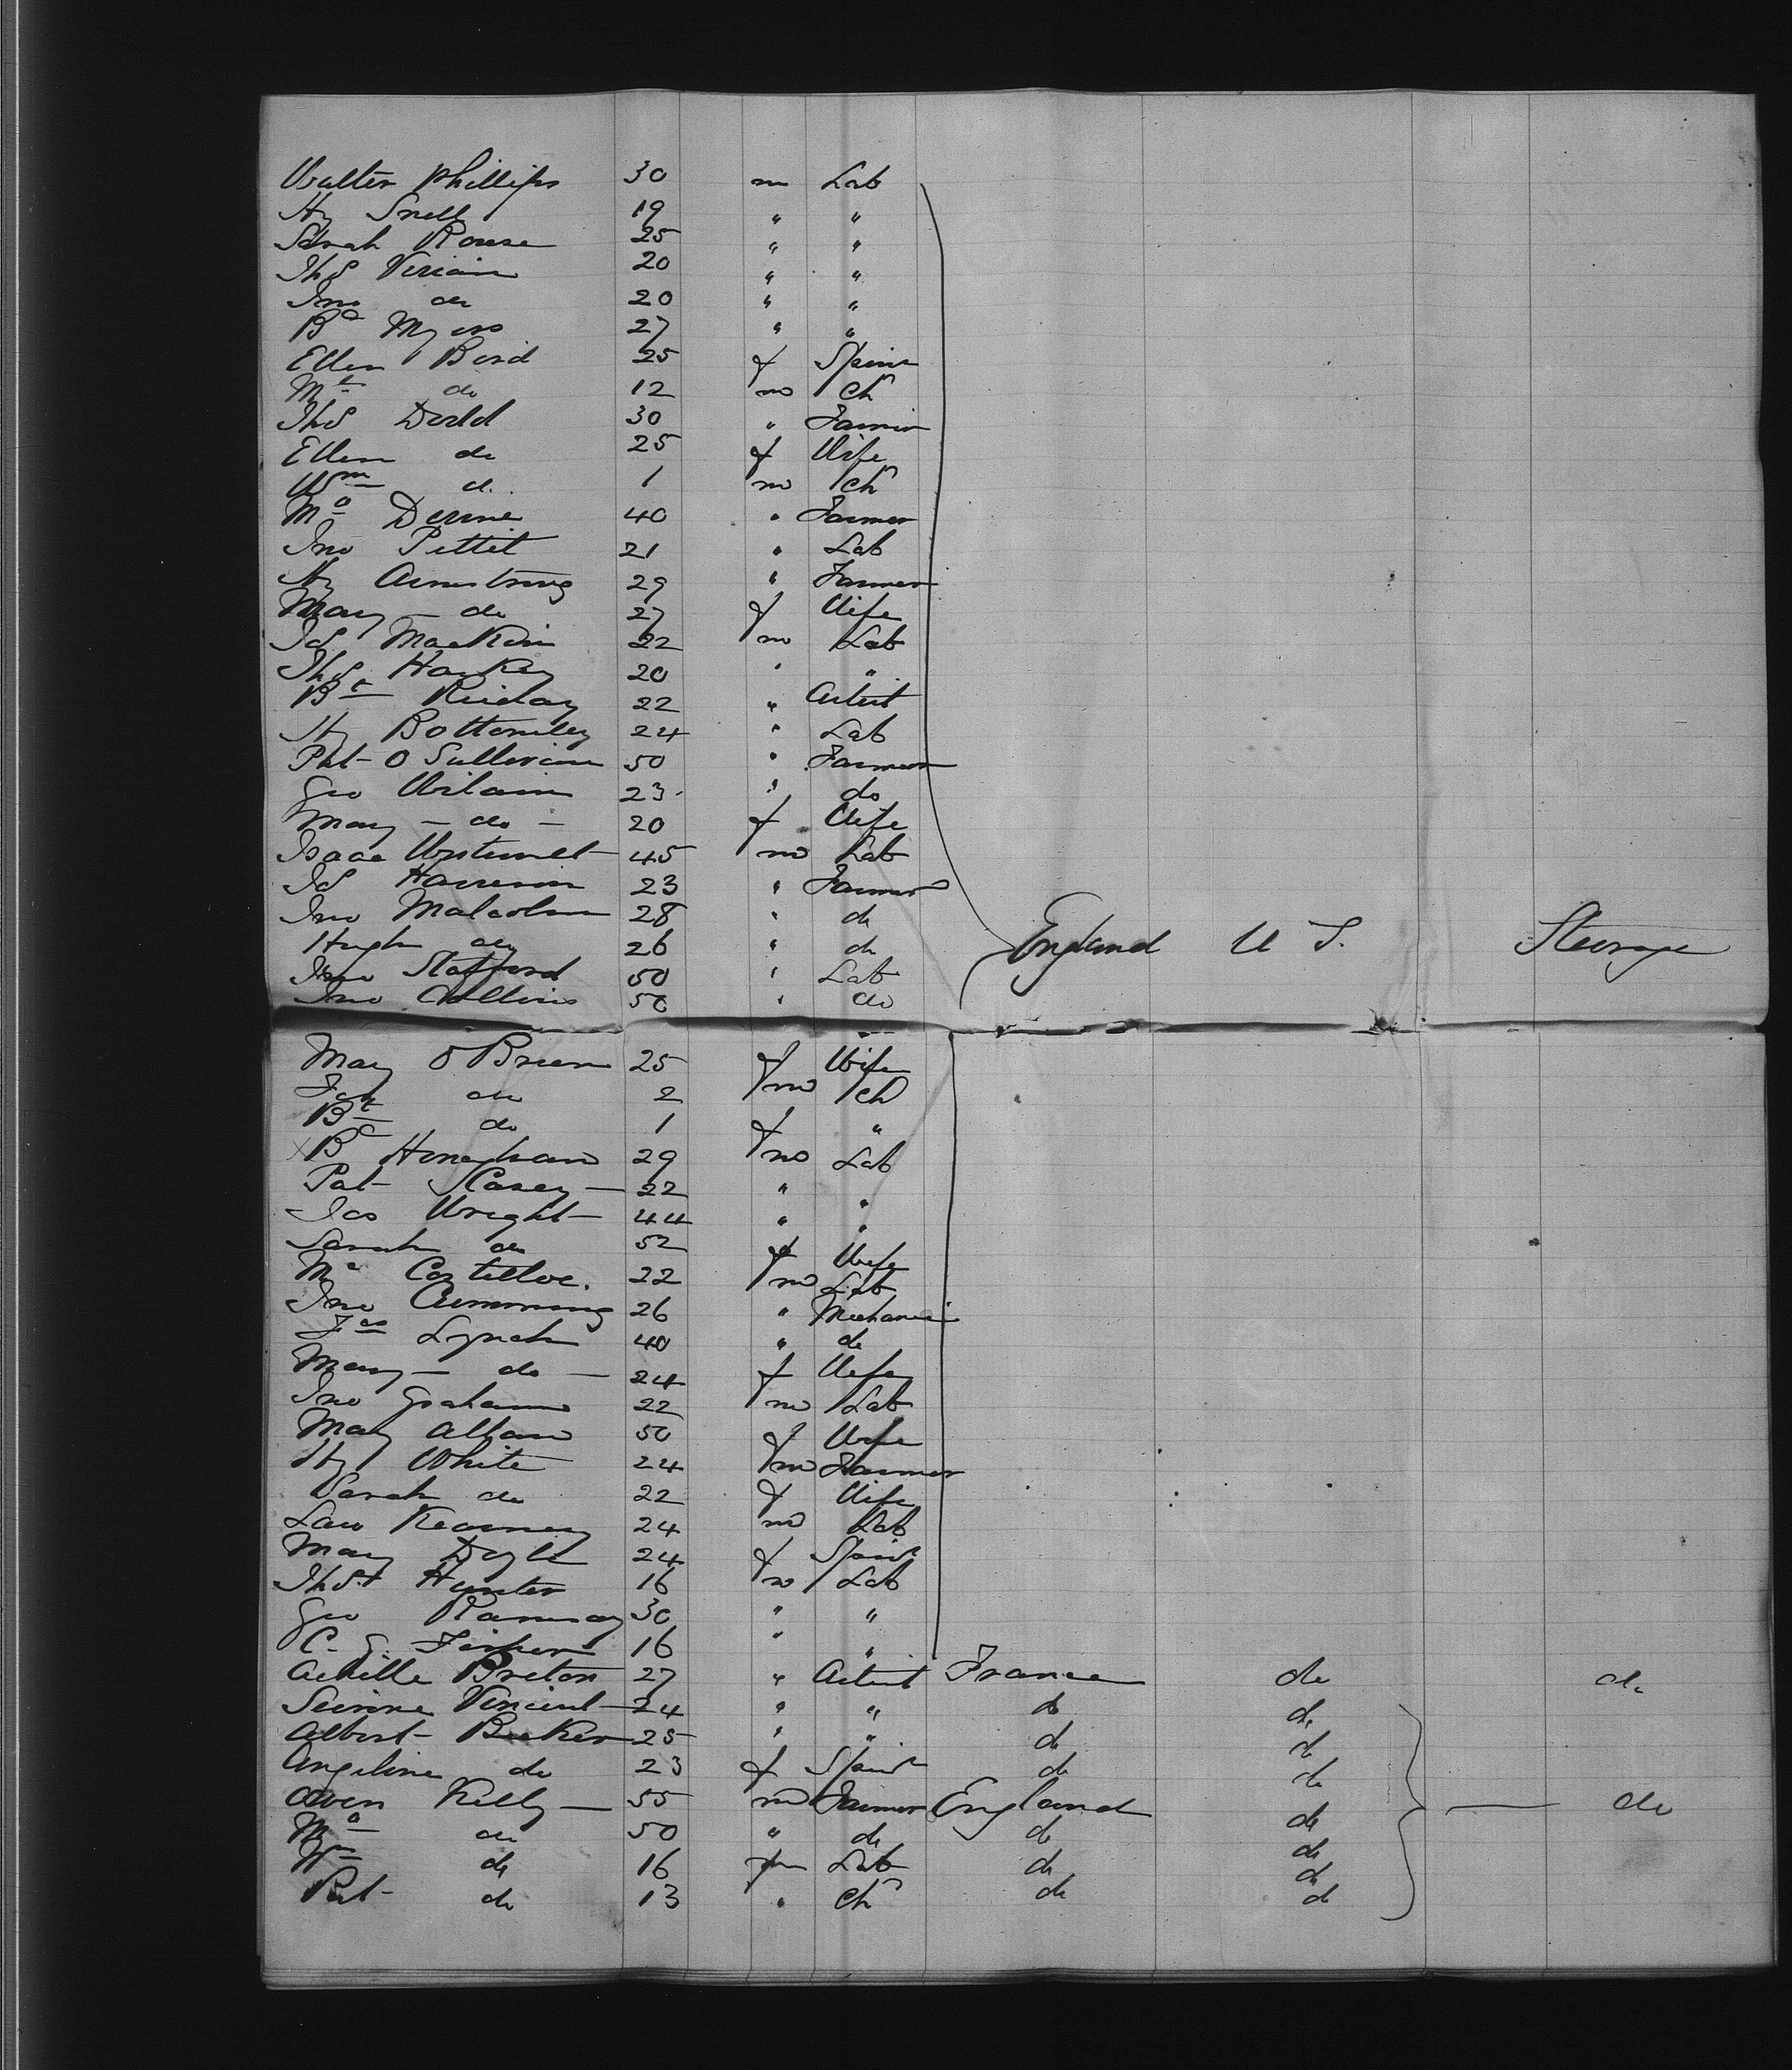 Walter Phillips 30 m Lab
Hy Snell 19 " "
Sarah Rouse 25 " "
Thos Vivian 20 " "
Jno do 20 " "
Bd Myers 27 " "
Ellen Bond 25 f Spinr
Mt do 12 m Ch
Thos Dodd 30 " Farmer
Ellen do 25 f Wife
Wm d. 1 m Ch
Mo Devine 40 " Farmer
Jno Pettit 21 " Lab
Hy Armstrong 29 " Farmer
Mary - do 27 f Wife
Js Mackin 22 m Lab
Thos Harkey 20 " "
Bt 22 " Artist
Hy Bottomley 24 " Lab
Pat - O Sullivan 50 " Farmer
Geo 23 " do
Mary - do - 20 f Wife
Isaac 45 m Lab
Js Harrison 23 " Farmer
Jno Malcolm 28 " do
Hugh do 26 " do England U S. Steerage
Jno Stafford 50 " Lab
Jno Collins 50 " do
Mary O Brien 25 f Wife
do 2 m Ch
Bt do 1 f "
Bd Honeghan 29 m Lab
Pat Casey - 22 " "
Jas Wright - 44 " "
Sarah do 52 f Wife
Ml Costelloe. 22 m Lab
Jno Cumming 26 " Mechanic
Jas Lynch 40 " do
Mary - do - 24 f Wife
Jno Graham 22 m Lab
Mary Allan 50 f Wife
Hy White 24 m Farmer
Sarah do 22 f Wife
Law Kearney 24 m Lab
Mary Doyle 24 f Spinr
Thos Hunter 16 m Lab
Geo Ramsay 30 " "
C. G. Fisher 16 " "
Achille Breton 27 " Artist France do do
Vincent - 24 " " do do
Albert - Becker 25 " " do do
Angeline do 23 f Spinr do do
Owen Kelly - 55 m Farmer England do — do
Mo do 50 " do do do
Wm do 16 m Lab do do
Pat - do 13 " Ch do do